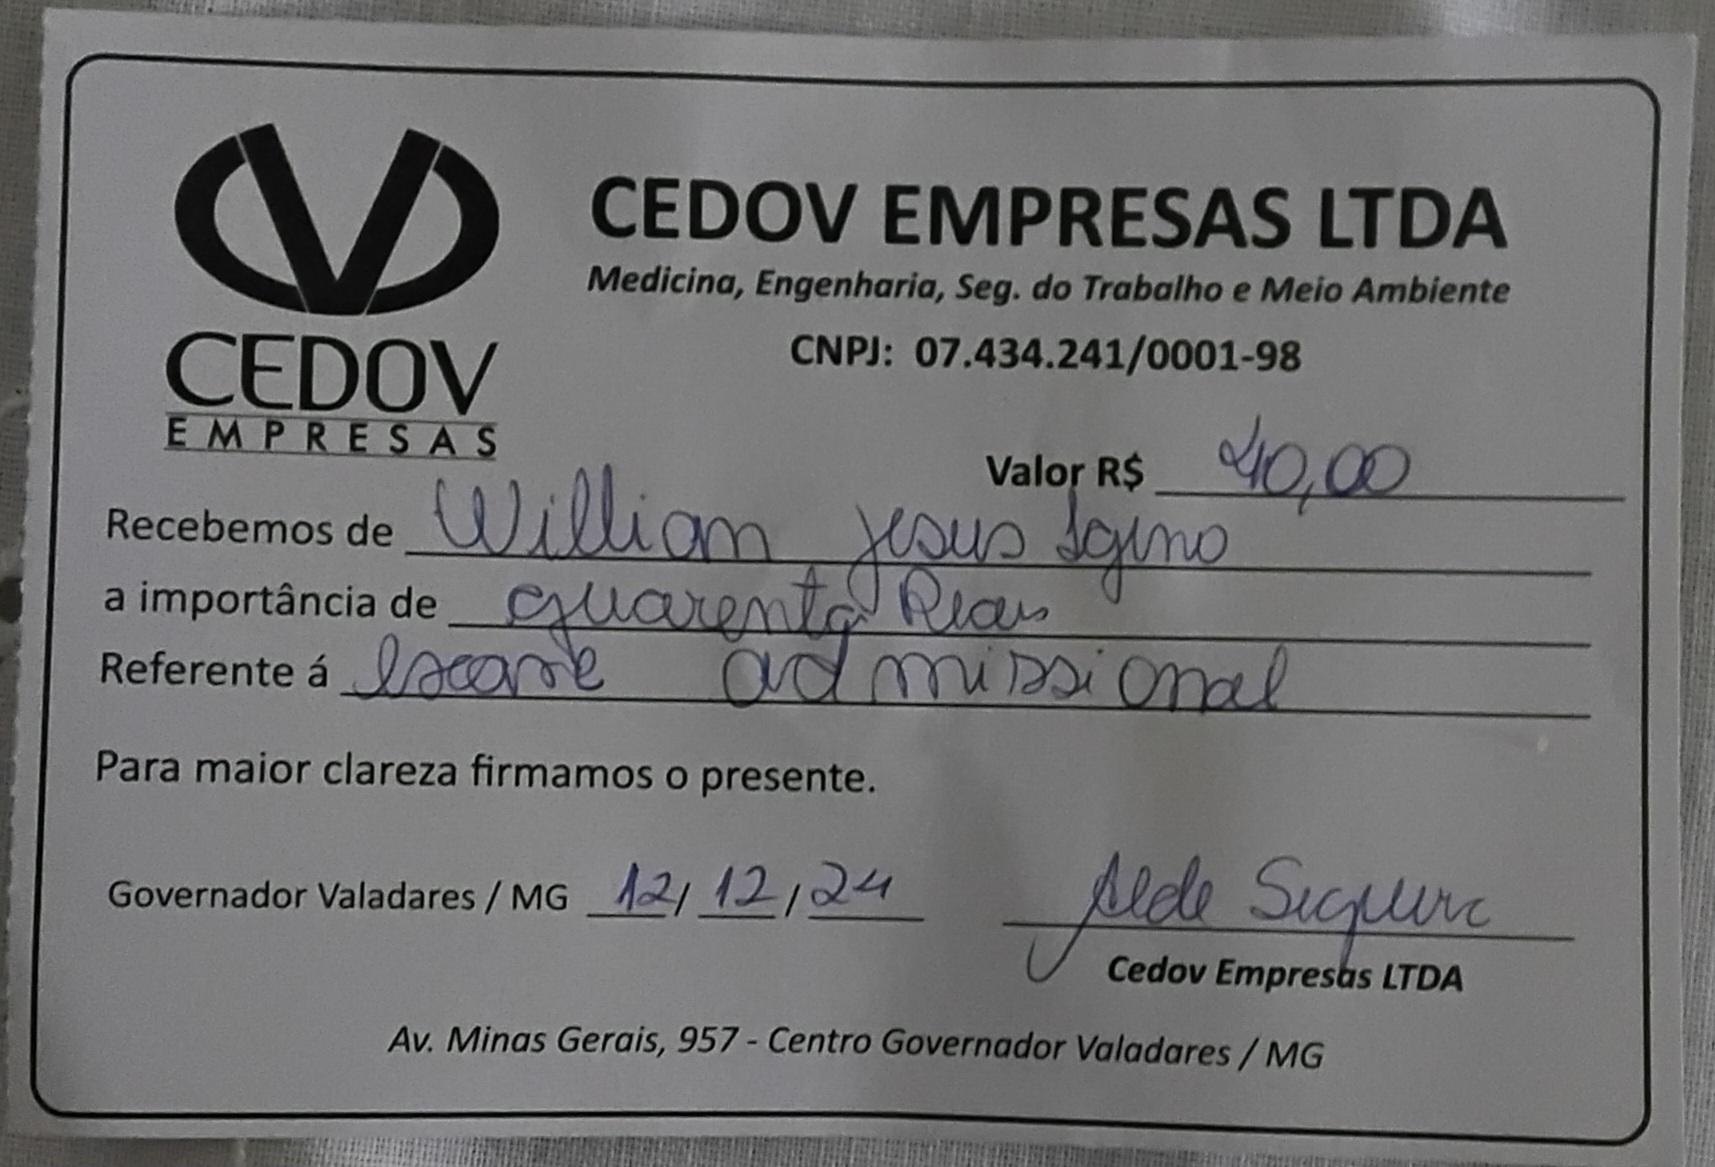 CEDOV EMPRESAS LTDA
Medicina, Engenharia, Seg. do Trabalho e Meio Ambiente
CNPJ: 07.434.241/0001-98
CEDOV
EMPRESAS
Valor R$ 40,00
Recebemos de William Jesus Igino
a importância de quarenta Reais
Referente á Exame admissional
Para maior clareza firmamos o presente.
Governador Valadares / MG 12/12/24
Siqueira
Cedov Empresas LTDA
Av. Minas Gerais, 957 - Centro Governador Valadares / MG